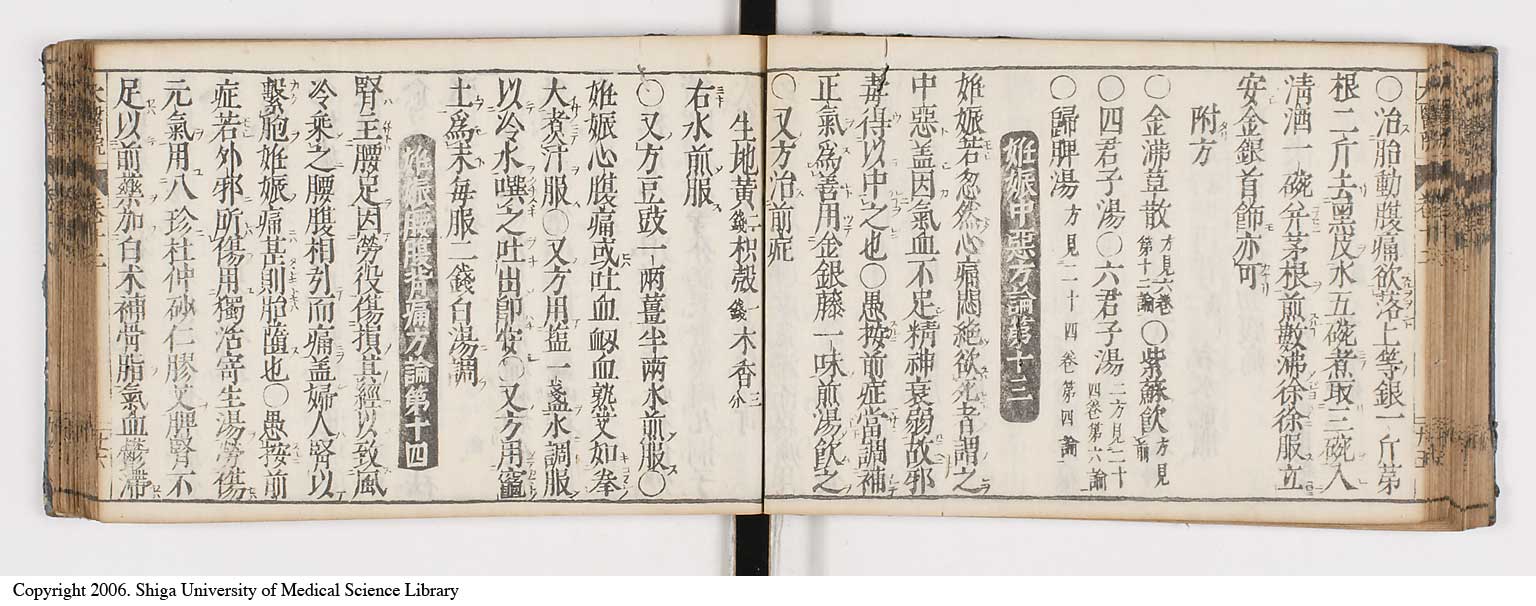 〇治胎動腹痛欲落上等銀一斤苐
根二斤去黑皮水五碗煮取三碗入
清酒一碗并茅根煎數沸徐徐服立
安金銀首飾亦可
附方
〇金沸草散方見六卷第十二論〇紫蘇飲方見前
〇四君子湯〇六君子湯二方見二十四卷第六論
〇歸脾湯方見二十四卷第四論
姙娠中惡方論第十三
姙娠若忽然心痛悶絶欲死者謂之
中惡盖因氣血不足精神衰弱故邪
毒得以中之也〇愚按前症當調補
正氣爲善用金銀藤一味煎湯飲之
〇又方治前症
生地黃二錢枳殼一錢木香三分
右水煎服
〇又方豆豉一兩薑半兩水煎服〇
姙娠心腹痛或吐血衂血熟艾如拳
大煮汁服〇又方用塩一盞水調服
以冷水噀之吐出即安〇又方用竈
土爲末每服二錢白湯調
姙娠腰腹背痛方論第十四
腎主腰足因勞役傷損其經以致風
冷乘之腰腹相引而痛盖婦人腎以
繫胞姙娠痛甚則胎墮也〇愚按前
症若外邪所傷用獨活寄生湯勞傷
元氣用八珍杜仲砂仁膠艾脾腎不
足以前藥加白朮補骨脂氣血鬱滯
Copyright 2006. Shiga University of Medical Science Library